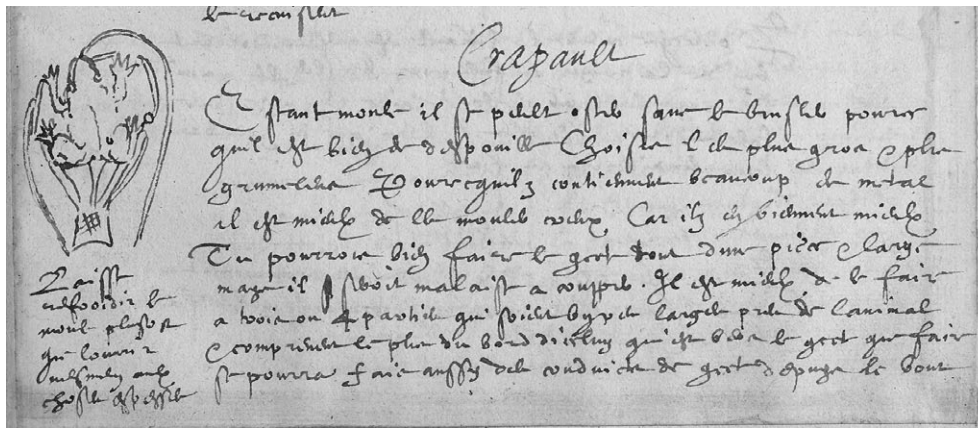 Crapault
Estant moule il se peult oster sans le brusler pource
quil est bien de despouille Choisis le le plus gros & plus
grumeleux Pourcequilz contiennent beaucoup de metal
il est mieulx de les mouler creux Car ilz en viennent mieulx
Tu pourrois bien faire le gect tout dune piece & large
mays il seroit malaise a coupper Il est mieulx de le faire
a trois ou 4 parties qui soient larges pres de lanimal
& comprenent le plus du bord diceluy qui est vers le gect
se pourra faire aussy de le conduict de gect depuys le bout
Laisse
refroidir le
moule plustost
que louvrir
mesmem{ent} aulx
choses espesses